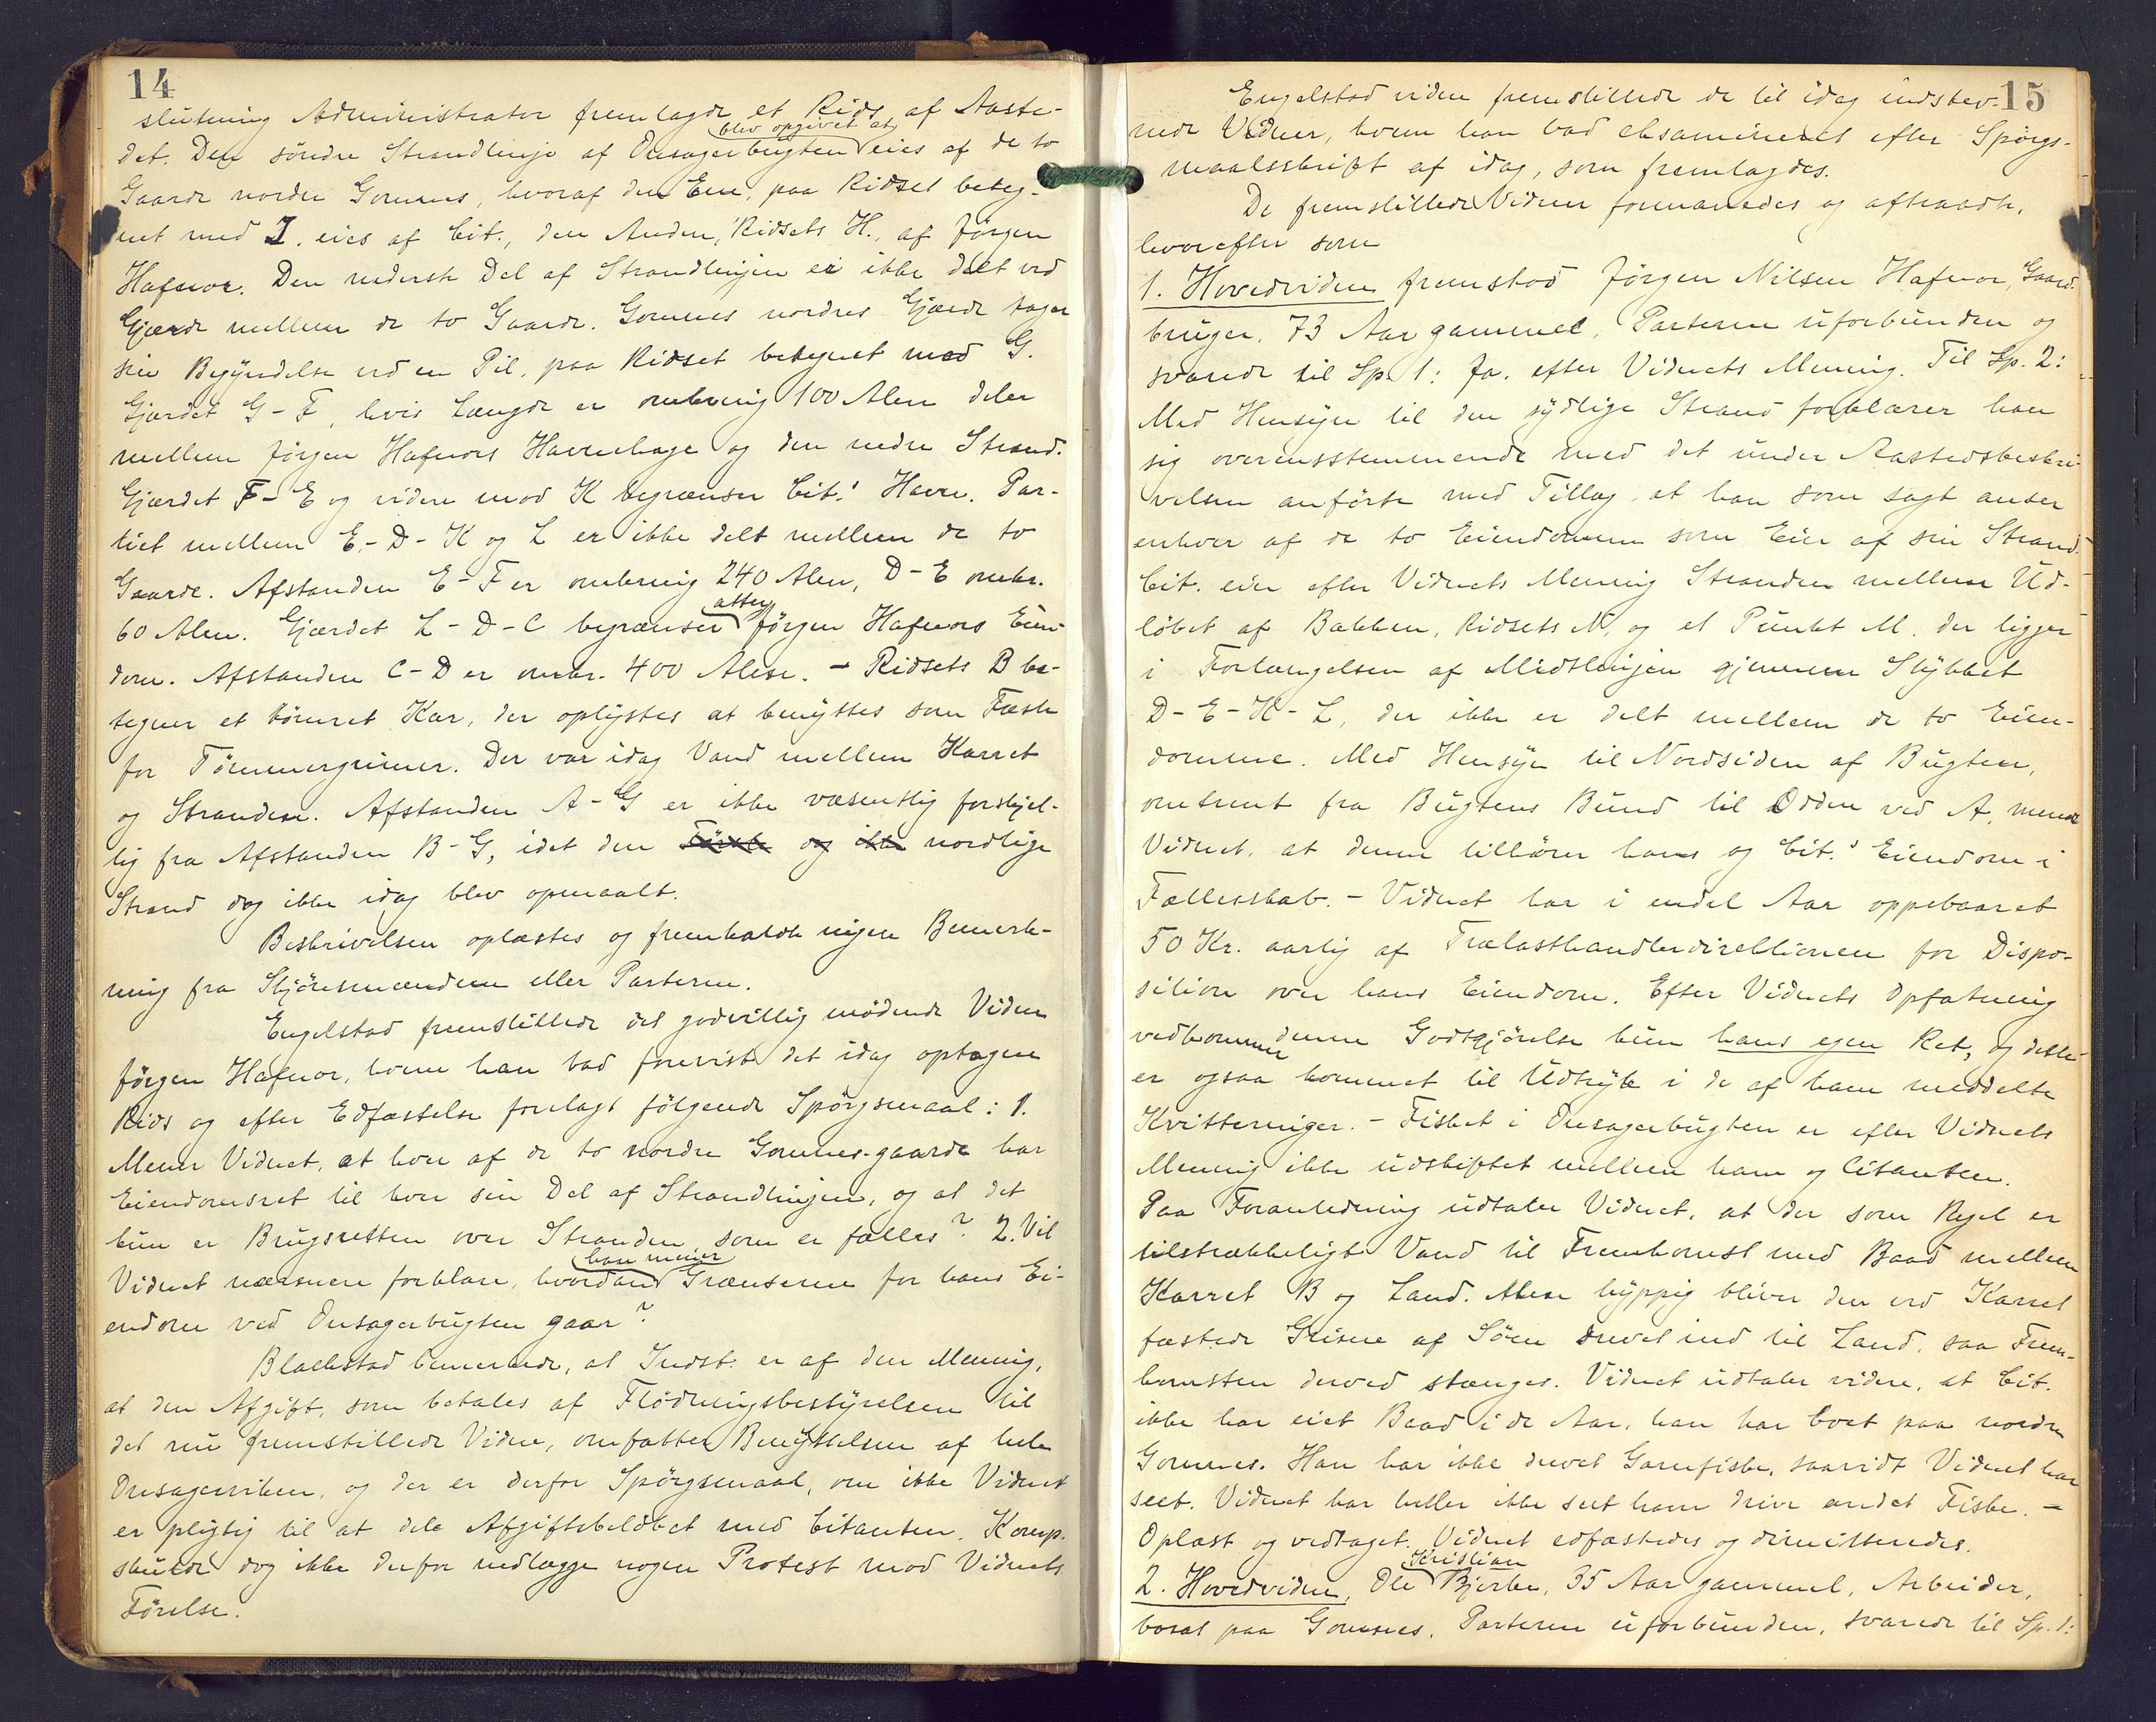 14
slutning Administrator fremlagde et Rids af Aaste-
det. Den söndre Strandlinje af Onsagerbugten blev opgivet at eies af de to
Gaarde nordre Gomnes, hvoraf den Ene, paa Ridset beteg-
net med I. eies af Cit., den Anden, Ridsets H., af Jörgen
Hafnor. Den nederste Del af Strandlinjen er ikke delt ved
Gjærde mellem de to Gaarde. Gomnes nordres Gjærde tager
sin Begyndelse ved en Pil, paa Ridset betegnet med G.
Gjærdet G-F, hvis Længde er omkring 100 Alen deler
mellem Jörgen Hafnors Havnehage og den nedre Strand.
Gjærdet F-E og videre mod K begrænser Cit.' Havn. Par-
tiet mellem E-D-K og L er ikke delt mellem de to
Gaarde. Afstanden E-F er omkring 240 Alen, D-E omkr.
60 Alen. Gjærdet L-D-C begrænser atter Jörgen Hafnors Eien-
dom. Afstanden C-D er omkr. 400 Alen. - Ridsets B be-
tegner et tömret Kar, der oplystes at benyttes som Fæste
for Tömmergrimer. Der var idag Vand mellem Karret
og Stranden. Afstanden A-G er ikke væsentlig forskjel-
lig fra Afstanden B-G, idet den og ikke nordlige
Strand dog ikke idag blev opmaalt.
Beskrivelsen oplæstes og fremkaldte ingen Bemærk-
ning fra Skjönsmændene eller Parterne.
Engelstad fremstillede det godvillig mödende Vidne
Jörgen Hafnor, hvem han bad forevist det idag optagne
Rids og efter Edfæstelse forelagt fölgende Spörgsmaal: 1.
Mener Vidnet, at hver af de to nordre Gomnes-gaarde har
Eiendomsret til hver sin Del af Strandlinjen, og at det
kun er Brugsretten over Stranden, som er fælles? 2. Vil
Vidnet nærmere forklare, hvordan han mener Grænserne for hans Ei-
endom ved Onsagerbugten gaar?
Blakstad bemærkede, at Indst. er af den Mening,
at den Afgift, som betales af Flödningsbestyrelsen til
det nu fremstillede Vidne, omfatter Benyttelsen af hele
Onsagerviken, og der er derfor Spörgsmaal, om ikke Vidnet
er pligtig til at dele Afgiftsbelöbet med Citanten. Komp.
skulde dog ikke derfor nedlægge nogen Protest mod Vidnets
Förelse.
15
Engelstad videre fremstillede de til idag indstev-
nede Vidner, hvem han bad eksamineret efter Spörgs-
maalsskrift af idag, som fremlagdes.
De fremstillede Vidner formanedes og aftraadte,
hvorefter som
1. Hovedvidne fremstod Jörgen Nilsen Hafnor, Gaard-
bruger, 73 Aar gammel, Parterne uforbunden og
svarede til Sp. 1: Ja, efter Vidnets Mening. Til Sp. 2:
Med Hensyn til den sydlige Strand forklarer han
sig overensstemmende med det under Aastedsbeskri-
velsen anförte med Tillæg, at han som sagt anser
enhver af de to Eiendomme som Eier af sin Strand.
Cit. eier efter Vidnets Mening Stranden mellem Ud-
löbet af Bækken, Ridsets N, og et Punkt M, der ligger
i Forlængelsen af Midtlinjen gjennem Stykket
D-E-K-L, der ikke er delt mellem de to Eien-
domme. Med Hensyn til Nordsiden af Bugten,
omtrent fra Bugtens Bund til Odden ved A, mener
Vidnet, at denne tilhörer hans og Cit.' Eiendom i
Fællesskab. - Vidnet har i endel Aar oppebaaret
50 Kr. aarlig af Trælasthandlerdirektionen for Dispo-
sition over hans Eiendom. Efter Vidnets Opfatning
vedkommer denne Godtgjörelse kun hans egen Ret, og dette
er ogsaa kommet til Udtryk i de af ham meddelte
Kvitteringer. - Fisket i Onsagerbugten er efter Vidnets
Mening ikke udskiftet mellem ham og Citanten.
Paa Foranledning udtaler Vidnet, at der som Regel er
tilstrækkeligt Vand til Fremkomst med Baad mellem
Karret B og Land. Men hyppig bliver den ved Karret
fæstede Grime af Söen drevet ind til Land, saa Frem-
komsten derved stænges. Vidnet udtaler videre, at Cit.
ikke har eiet Baad i de Aar, han har boet paa nordre
Gomnes. Han har ikke drevet Garnfiske, saavidt Vidnet har
seet. Vidnet har heller ikke seet ham drive andet Fiske. -
Oplæst og vedtaget. Vidnet edfæstedes og dimitteredes.
2. Hovedvidne, Ole Kristian Bjerke, 35 Aar gammel, Arbeider,
bosat paa Gomnes, Parterne uforbunden, svarede til Sp. 1: